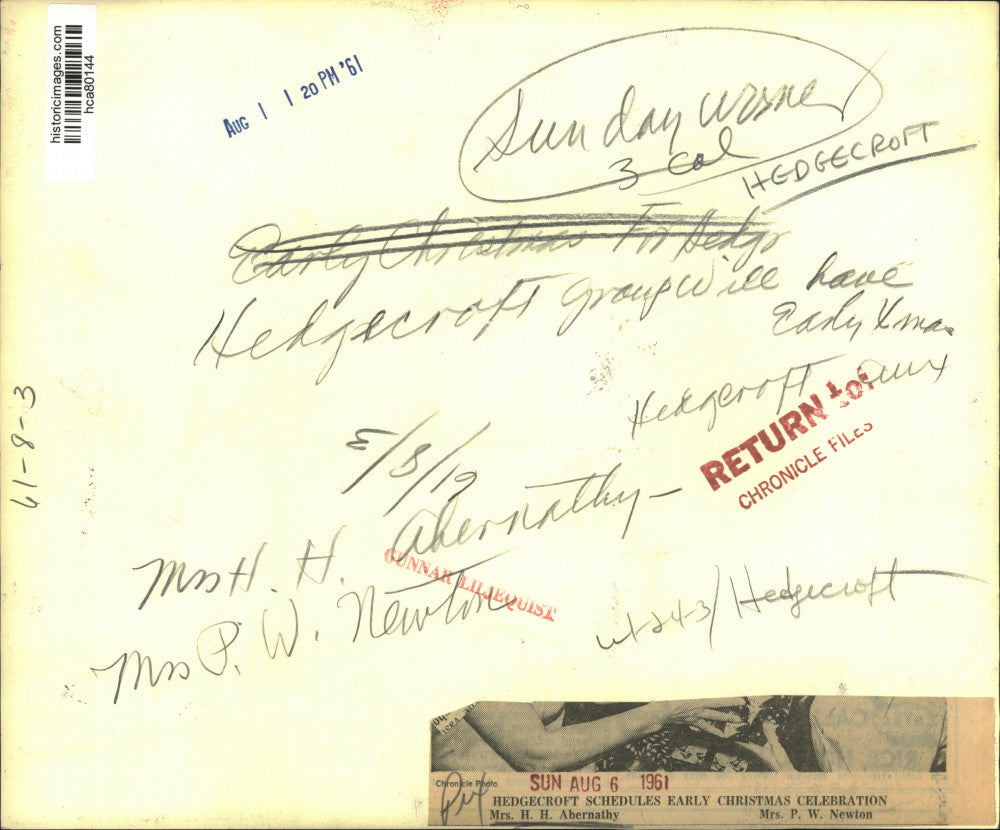 historicimages.com
hca80144
AUG 1 1 20 PM '61
Sunday
3 Col
HEDGECROFT
Early Christmas For Hedge
Hedgecroft group will have
Early Xmas
Hedgecroft Aux
RETURN to:
CHRONICLE FILES
61-8-3
Mrs H. H. Abernathy -
GUNNAR LILJEQUIST
Mrs P. W. Newton
/Hedgecroft
Chronicle Photo
SUN AUG 6 1961
HEDGECROFT SCHEDULES EARLY CHRISTMAS CELEBRATION
Mrs. H. H. Abernathy Mrs. P. W. Newton